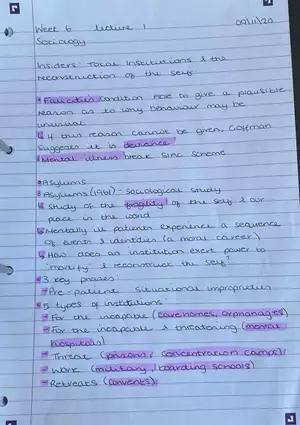 Week 6 lecture 1 09/11/20
Sociology
Insiders: Total Institutions & the
reconstruction of the self
Felicities condition have to give a plausible
reason as to why behaviour may be
unusual
↳ If this reason cannot be given, Goffman
suggests it is deviance
Mental illness break Sinc Scheme
Asylums
Asylums (1961) - sociological study
↳ Study of the fragility of the self & our
place in the world
↳ Mentally ill patients experience a sequence
of events & identities (a moral career)
↳ How does an institution exert power to
'mortify' & reconstruct the self?
3 key phases:
Pre-patient situational improprieties
5 types of institutions
For the incapable (carehomes, orphanages)
For the incapable & threatening (mental
hospitals)
Threat (prisons, concentration camps)
Work (military, boarding schools)
Retreats (convents)